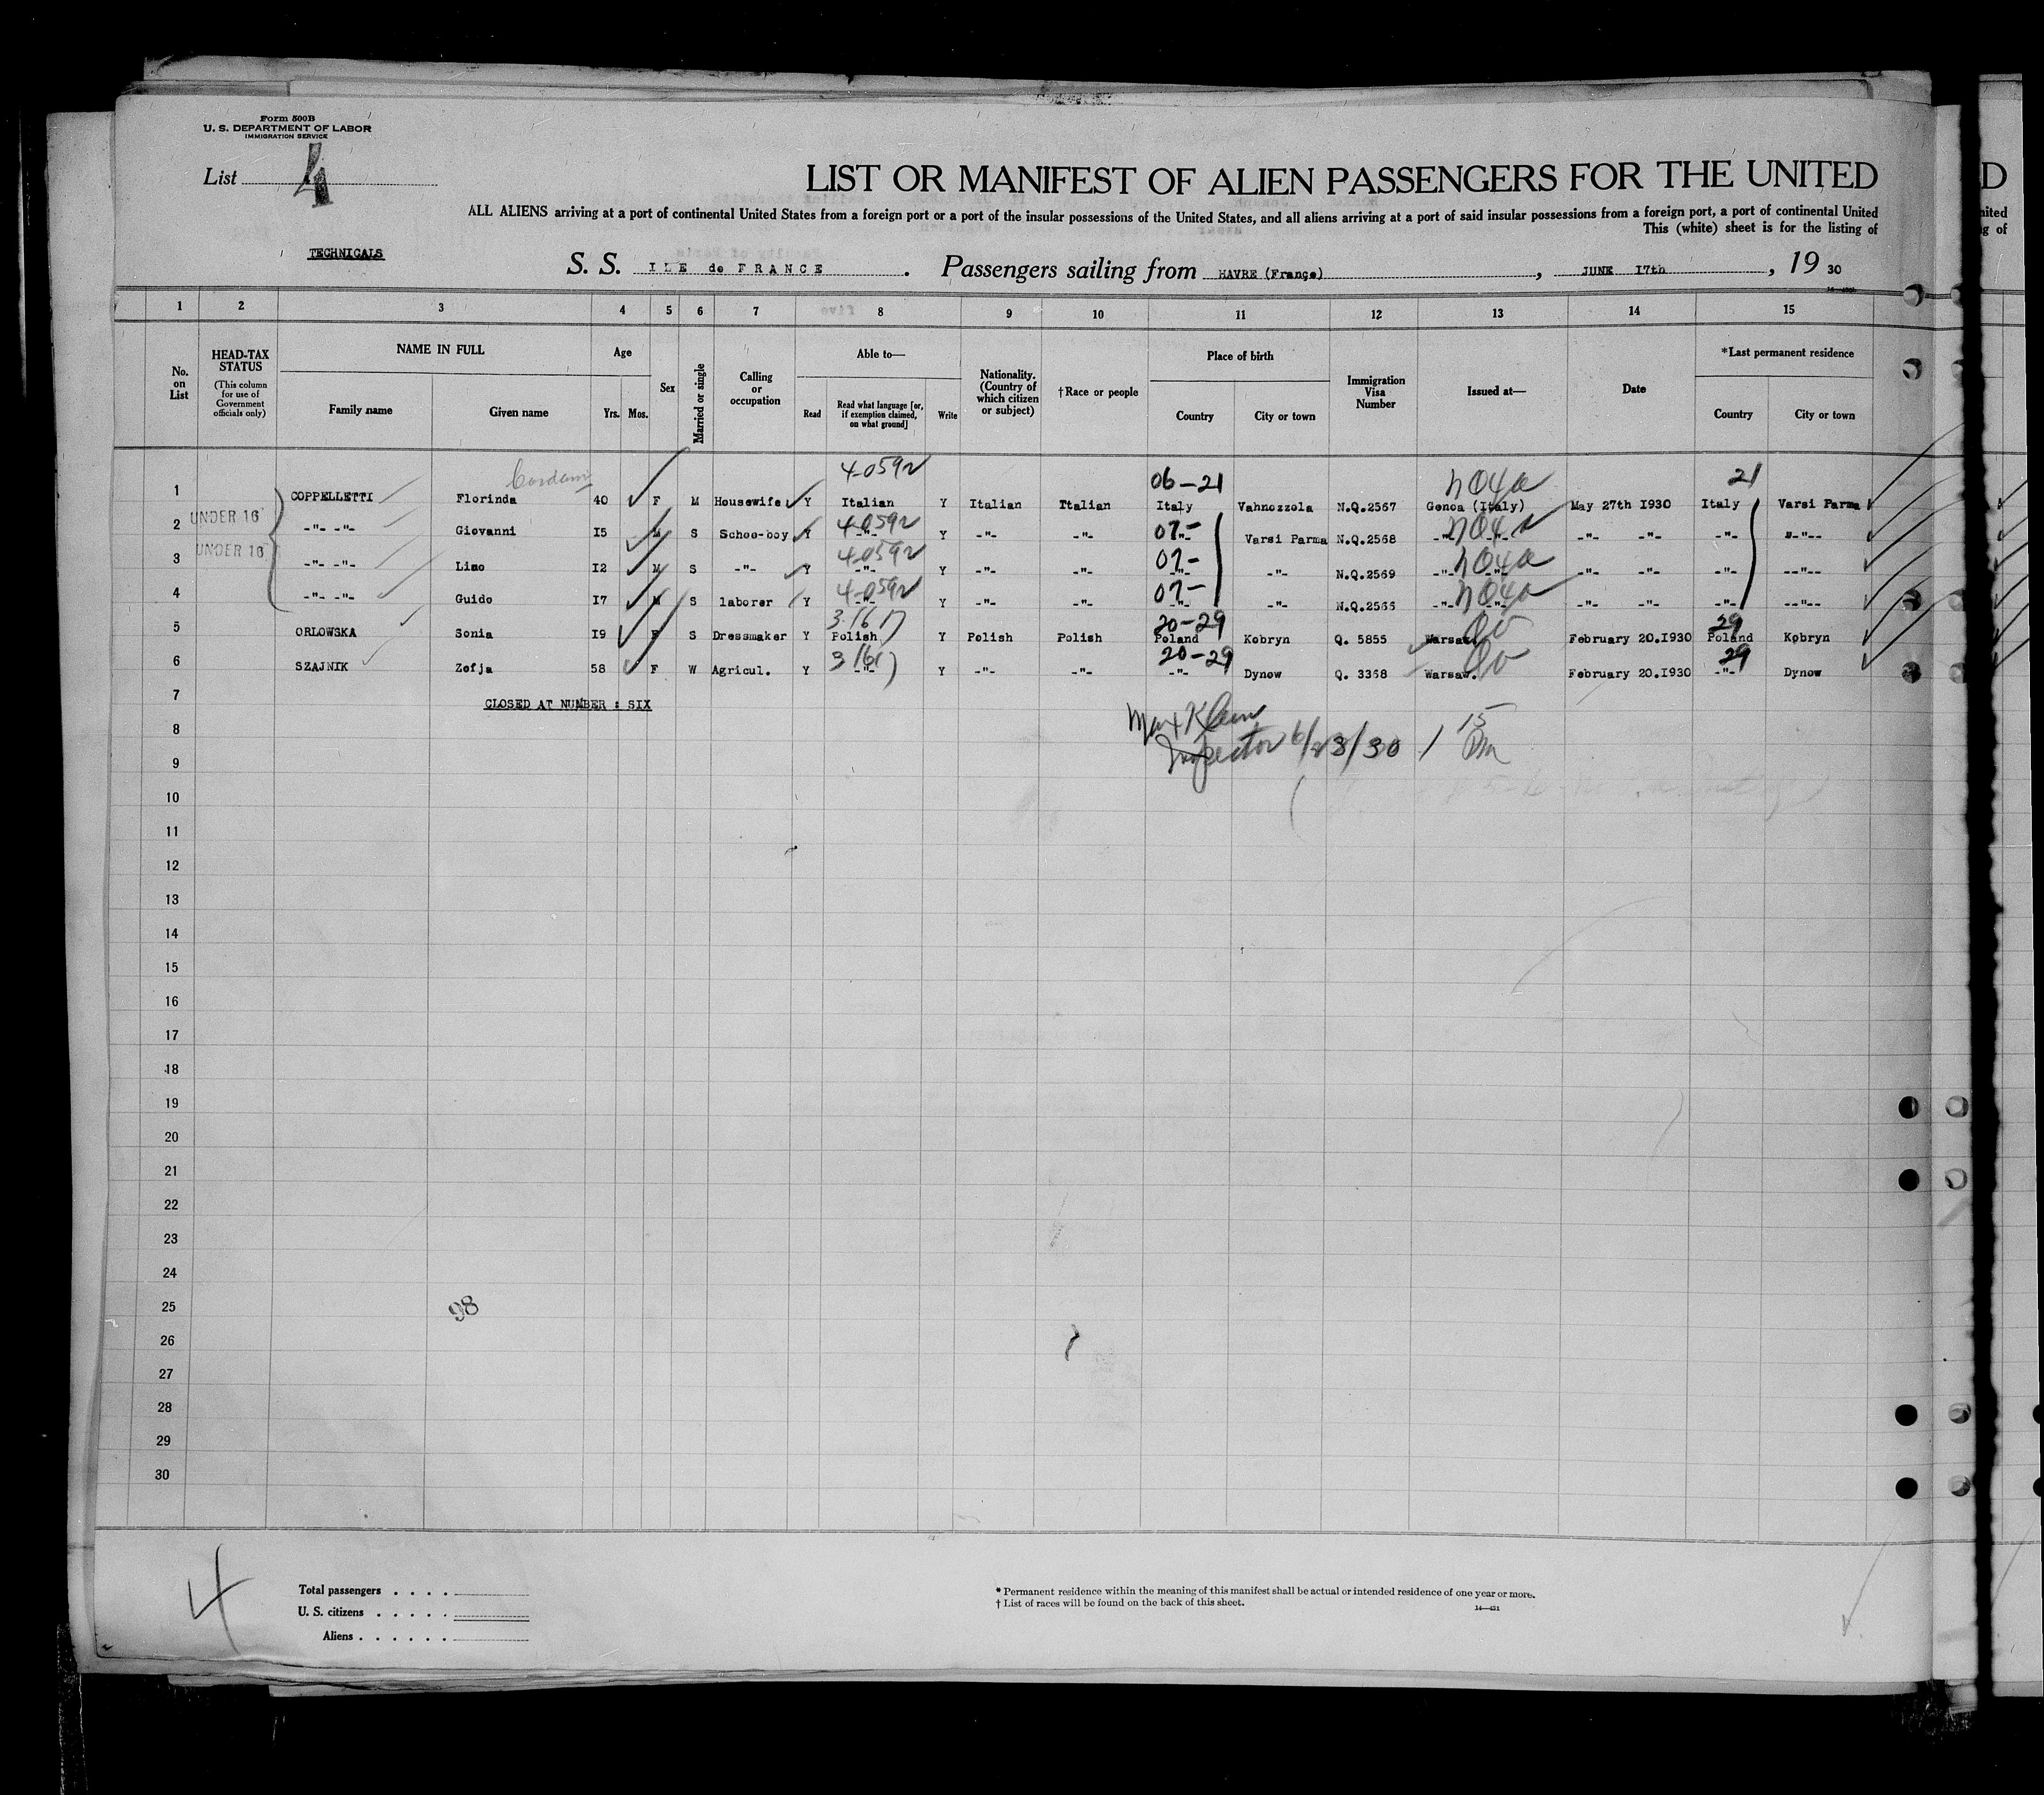 Form 500B
U. S. DEPARTMENT OF LABOR
IMMIGRATION SERVICE
List 4
LIST OR MANIFEST OF ALIEN PASSENGERS FOR THE UNITED
ALL ALIENS arriving at a port of continental United States from a foreign port or a port of the insular possessions of the United States, and all aliens arriving at a port of said insular possessions from a foreign port, a port of continental United
This (white) sheet is for the listing of
TECHNICALS
S. S. ILE de FRANCE. Passengers sailing from HAVRE (France), JUNE I7th, 19 30
1 2 3 4 5 6 7 8 9 10 11 12 13 14 15
No. on List
HEAD-TAX STATUS
(This column for use of Government officials only)
NAME IN FULL
Family name
Given name
Age
Yrs. Mos.
Sex
Married or single
Calling or occupation
Able to—
Read
Read what language [or, if exemption claimed, on what ground]
Write
Nationality. (Country of which citizen or subject)
†Race or people
Place of birth
Country
City or town
Immigration Visa Number
Issued at—
Date
*Last permanent residence
Country
City or town
4-0592 06-21 21
1 COPPELLETTI Florinda 40 F M Housewife Y Italian Y Italian Ttalian Italy Vahnozzola N.Q.2567 Genoa (Italy) May 27th I930 Italy Varsi Parma
UNDER 16
4-0592 07-
2 -"- -"- Giovanni I5 M S Schoo-boy Y -"- Y -"- -"- -"- Varsi Parma N.Q.2568 -"- -"- -"- -"- -"- --"--
UNDER 16
4-0592 07-
3 -"- -"- Lino I2 M S -"- Y -"- Y -"- -"- -"- -"- N.Q.2569 -"- -"- -"- -"- -"- --"--
4-0592 07-
4 -"- -"- Guido I7 M S laborer Y -"- Y -"- -"- -"- -"- N.Q.2566 -"- -"- -"- -"- -"- --"--
20-29 29
5 ORLOWSKA Sonia I9 F S Dressmaker Y Polish Y Polish Polish Poland Kobryn Q. 5855 Warsaw. February 20.I930 Poland Kobryn
20-29 29
6 SZAJNIK Zofja 58 F W Agricul. Y -"- Y -"- -"- -"- Dynow Q. 3368 Warsaw. February 20.I930 -"- Dynow
7 CLOSED AT NUMBER : SIX
Max Klein
8
Inspector 6/23/30 1 15 Pm
9
10
11
12
13
14
15
16
17
18
19
20
21
22
23
24
25
98
26
27
28
29
30
4
Total passengers . . . .
U. S. citizens . . . . .
Aliens . . . . . .
* Permanent residence within the meaning of this manifest shall be actual or intended residence of one year or more.
† List of races will be found on the back of this sheet.
14—431